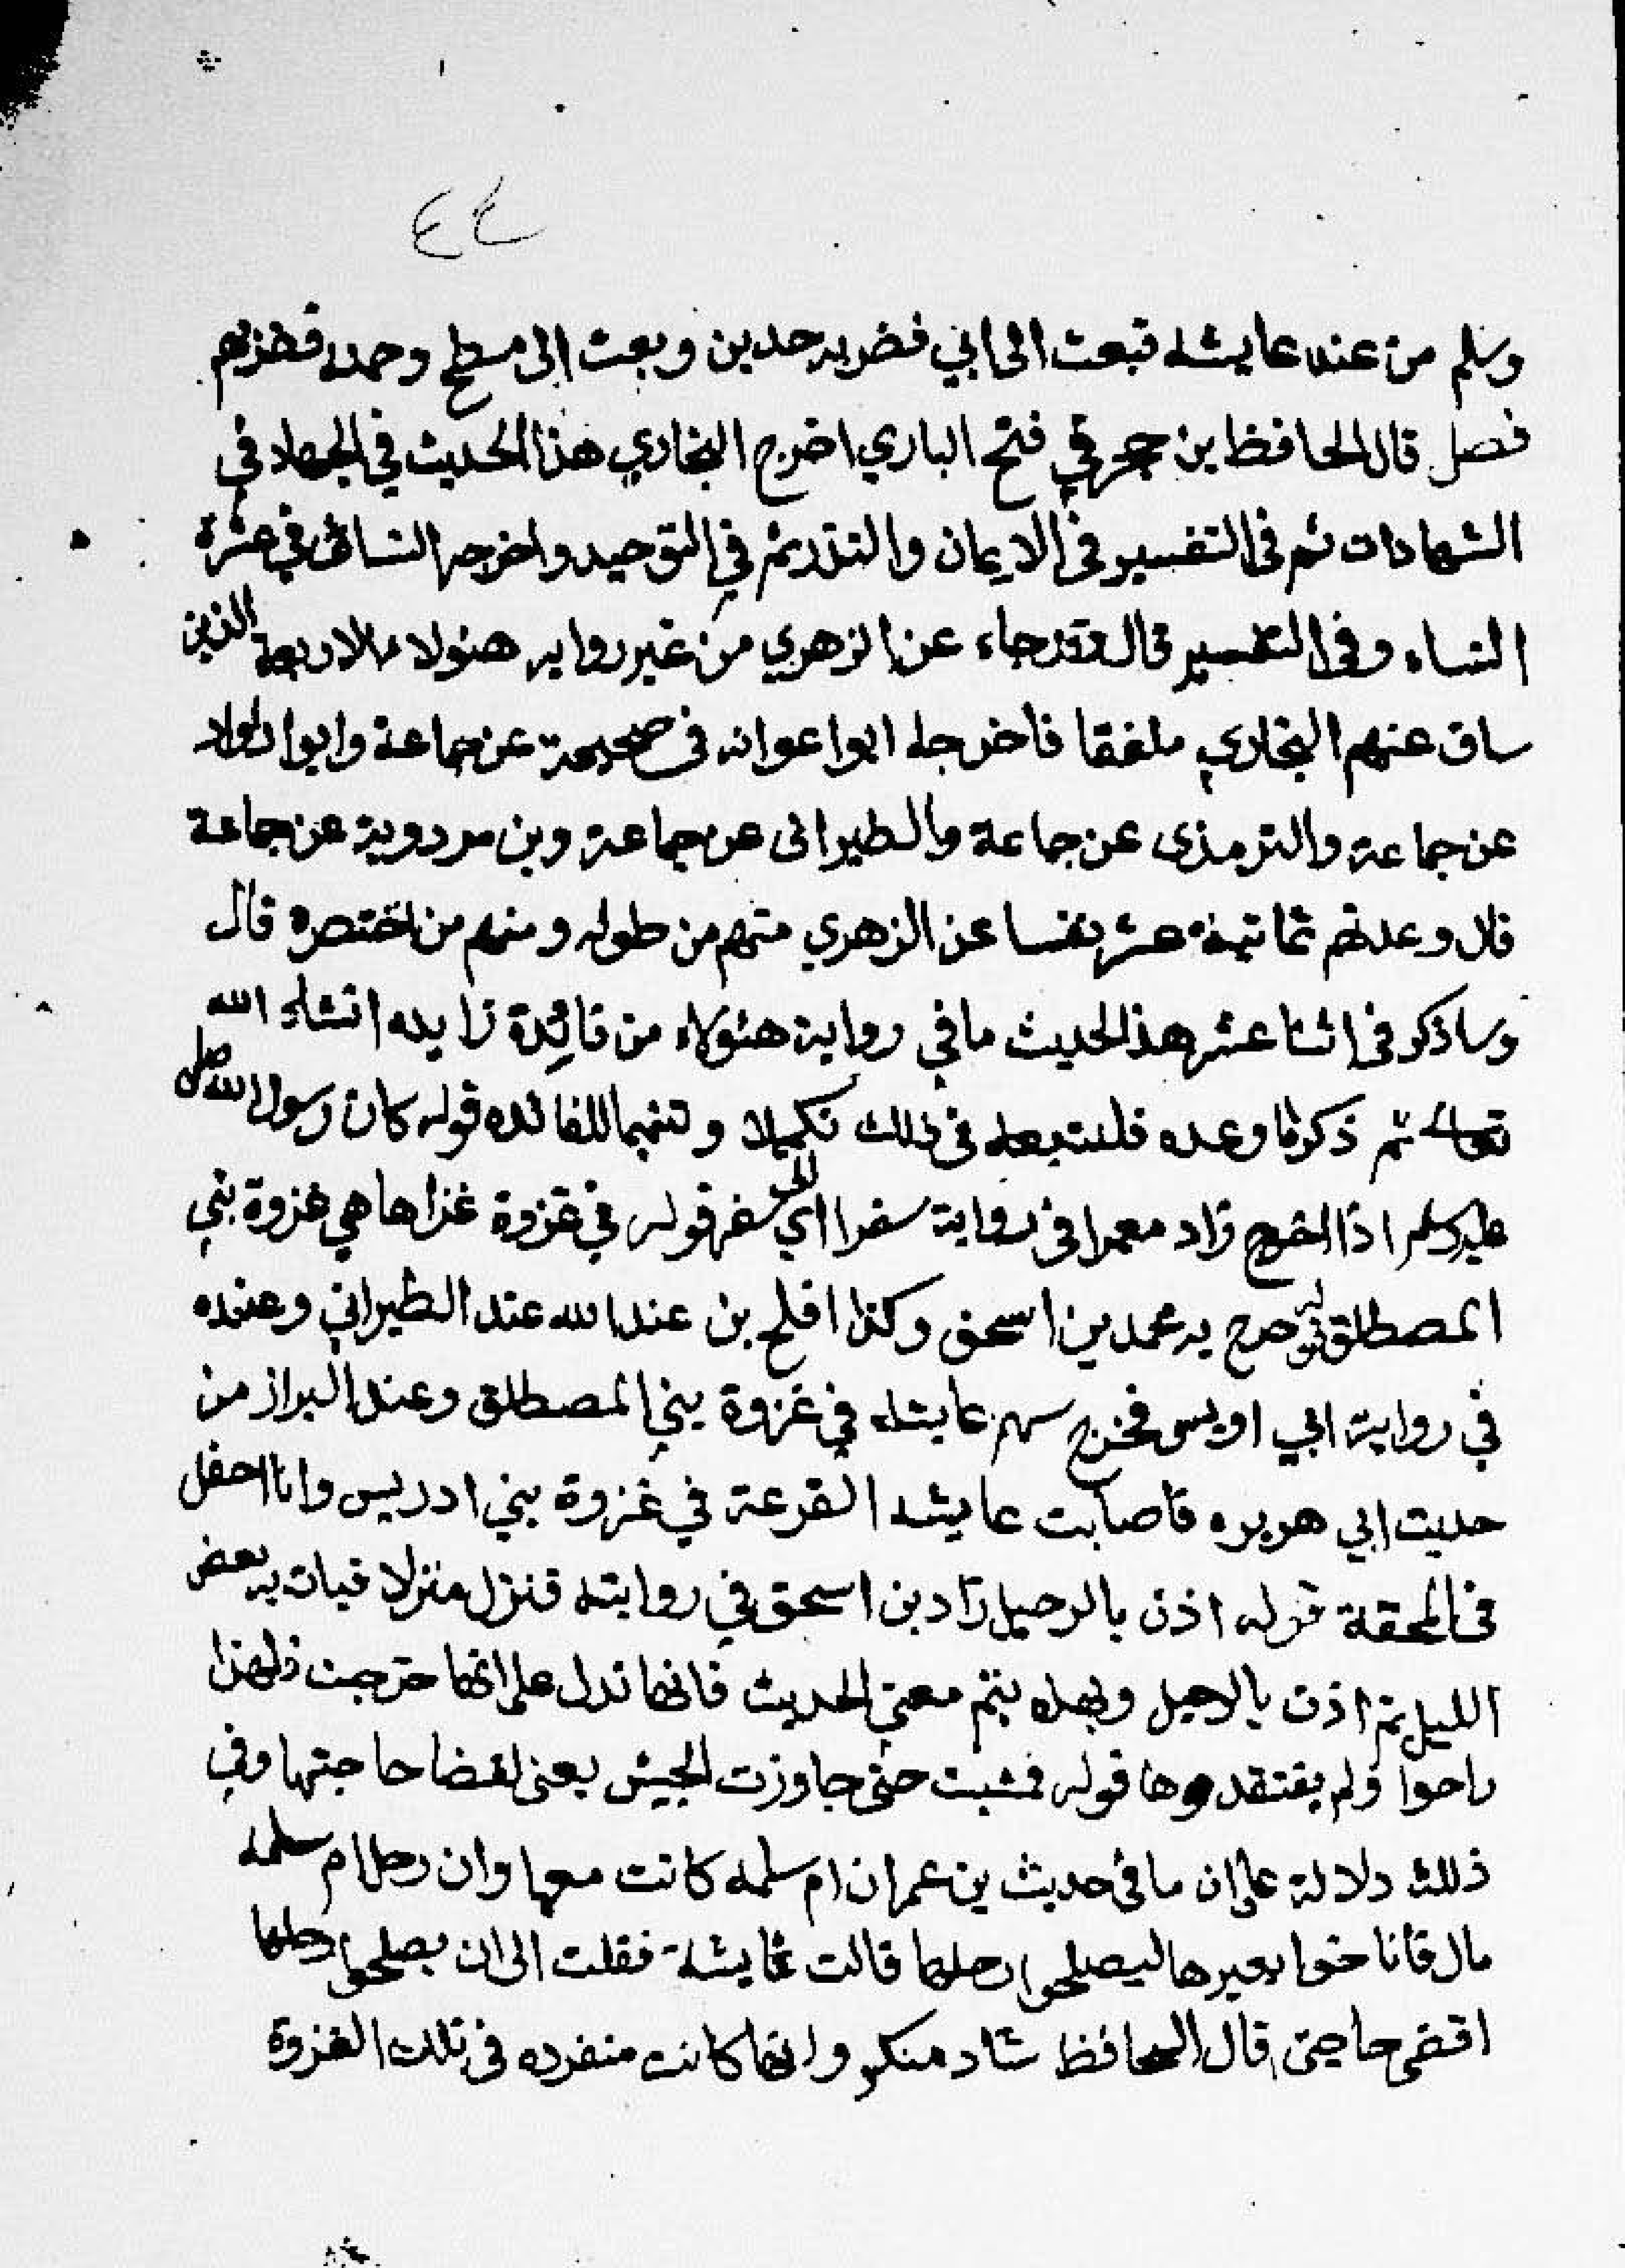 ٤٤
وسلم من عند عايشه فبعث الى ابي فضربه حدين وبعث الى مسطح وحمنه فضربهم
فصل قال الحافظ بن حجر في فتح الباري اخرج البخاري هذا الحديث في الجهاد في
الشهادات ثم في التفسير في الايمان والنذر ثم في التوحيد واخرجه النسائى في عشرة
النساء وفي التفسير قال وقد جاء عن الزهري من غير روايه هئولاء الاربعة الذين
ساق عنهم البخاري ملفقا فاخرجه ابوا عوانه في صحيحه عن جماعة وابوا داواد
عن جماعة والترمذى عن جماعة والطبرانى عن جماعة وبن مردوية عن جماعة
قال وعدتهم ثمانية عشر نفسا عن الزهري منهم من طوله ومنهم من اختصره قال
وساذكر في اثنا عشر هذ الحديث ما في رواية هئولاء من فائدة زايده انشاء الله
تعالى ثم ذكر ما وعده فلنتبعه في ذلك تكميلا وتتميما للفائده قوله كان رسول الله صلى
عليه وسلم اذا اخرج زاد معمرا في رواية سفرا اي الى سفر قوله في غزوة غزاها هي غزوة بني
المصطلق صرح به محمد بن اسحق وكذا افلح بن عبد الله عند الطبراني وعنده
في رواية ابي اويس فخرج سهم عايشه في غزوة بني المصطلق وعند البزاز من
حديث ابي هريره فاصابت عايشه القرعة في غزوة بني ادريس وانا احفل
في المحقة قوله اذن بالرحيل زاد بن اسحق في روايته فنزل منزلا فبات به بعض
الليل ثم اذن بالرحيل وبهذه يتم معنى الحديث فانها تدل على انها خرجت فلهذا
راحوا ولم يفتقدوها قوله فمشيت حتى جاوزت الجيش يعنى لقضا حاجتها وفي
ذلك دلالة على ان ما في حديث بن عمر ان ام سلمه كانت معها وان رحل ام سلمه
مال فاناخوا بعيرها ليصلحوا رحلها قالت عايشة فقلت الى ان يصلحوا رحلها
اقضى حاجتى قال الحافظ شاد منكر وانها كانت منفرده في تلك الغزوة